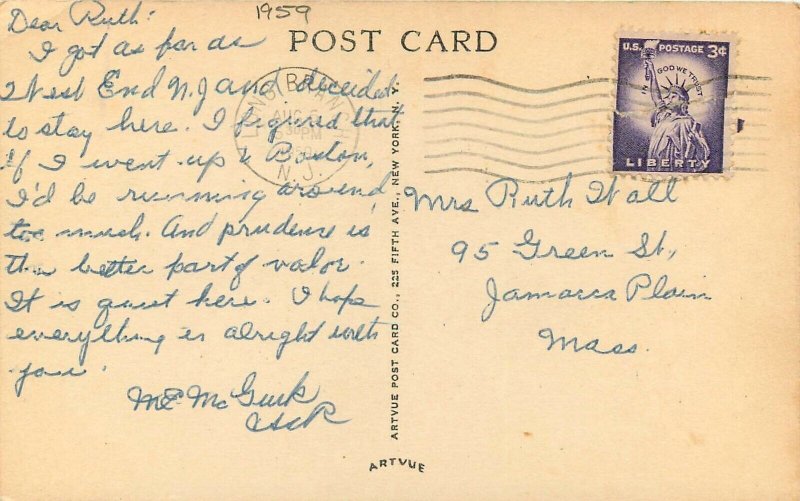 1959
Dear Ruth:
I got as far as
West End N.J and decided
to stay here. I figured that
if I went up to Boston,
I'd be running around
too much. And prudence is
the better part of valor.
It is quiet here. I hope
everything is alright with
you.
M E McGurk
POST CARD
LONG BRANCH
N.J.
U.S. POSTAGE 3¢
IN GOD WE TRUST
LIBERTY
Mrs Ruth Wall
95 Green St,
Jamaica Plain
Mass.
ARTVUE POST CARD CO., 225 FIFTH AVE., NEW YORK, N. Y.
ARTVUE